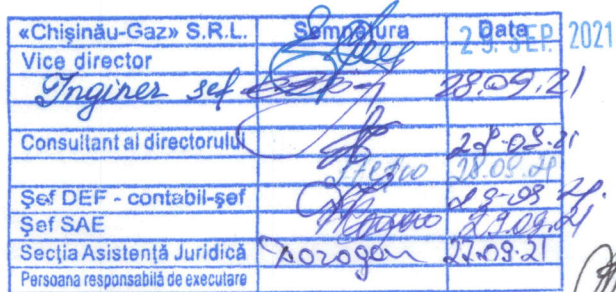 «Chișinău-Gaz» S.R.L. Semnătura Data
29. SEP. 2021
Vice director
Inginer șef 28.09.21
Consultant al directorului 28.09.21
28.09.21
Șef DEF - contabil-șef 29-09-21.
Șef SAE 29.09.21
Secția Asistență Juridică Dorogan 27.09.21
Persoana responsabilă de executare